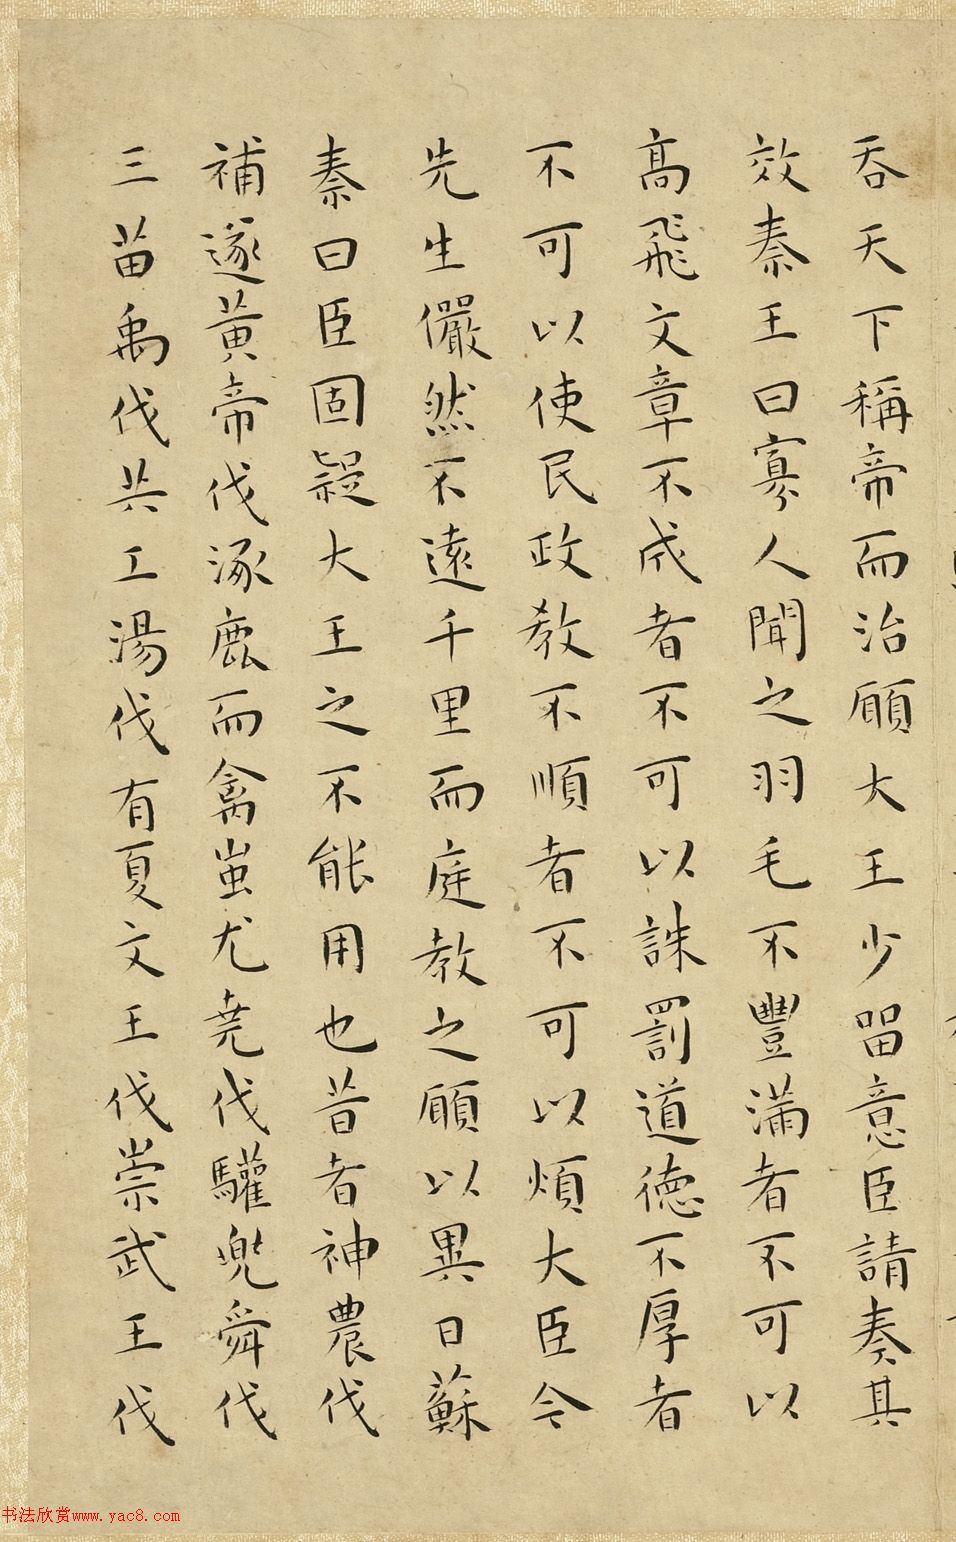 吞天下稱帝而治願大王少留意臣請奏其
效秦王曰寡人聞之羽毛不豐滿者不可以
高飛文章不成者不可以誅罰道德不厚者
不可以使民政教不順者不可以煩大臣今
先生儼然不遠千里而庭教之願以異日蘇
秦曰臣固疑大王之不能用也昔者神農伐
補遂黃帝伐涿鹿而禽蚩尤堯伐驩兜舜伐
三苗禹伐共工湯伐有夏文王伐崇武王伐
书法欣赏www.yac8.com